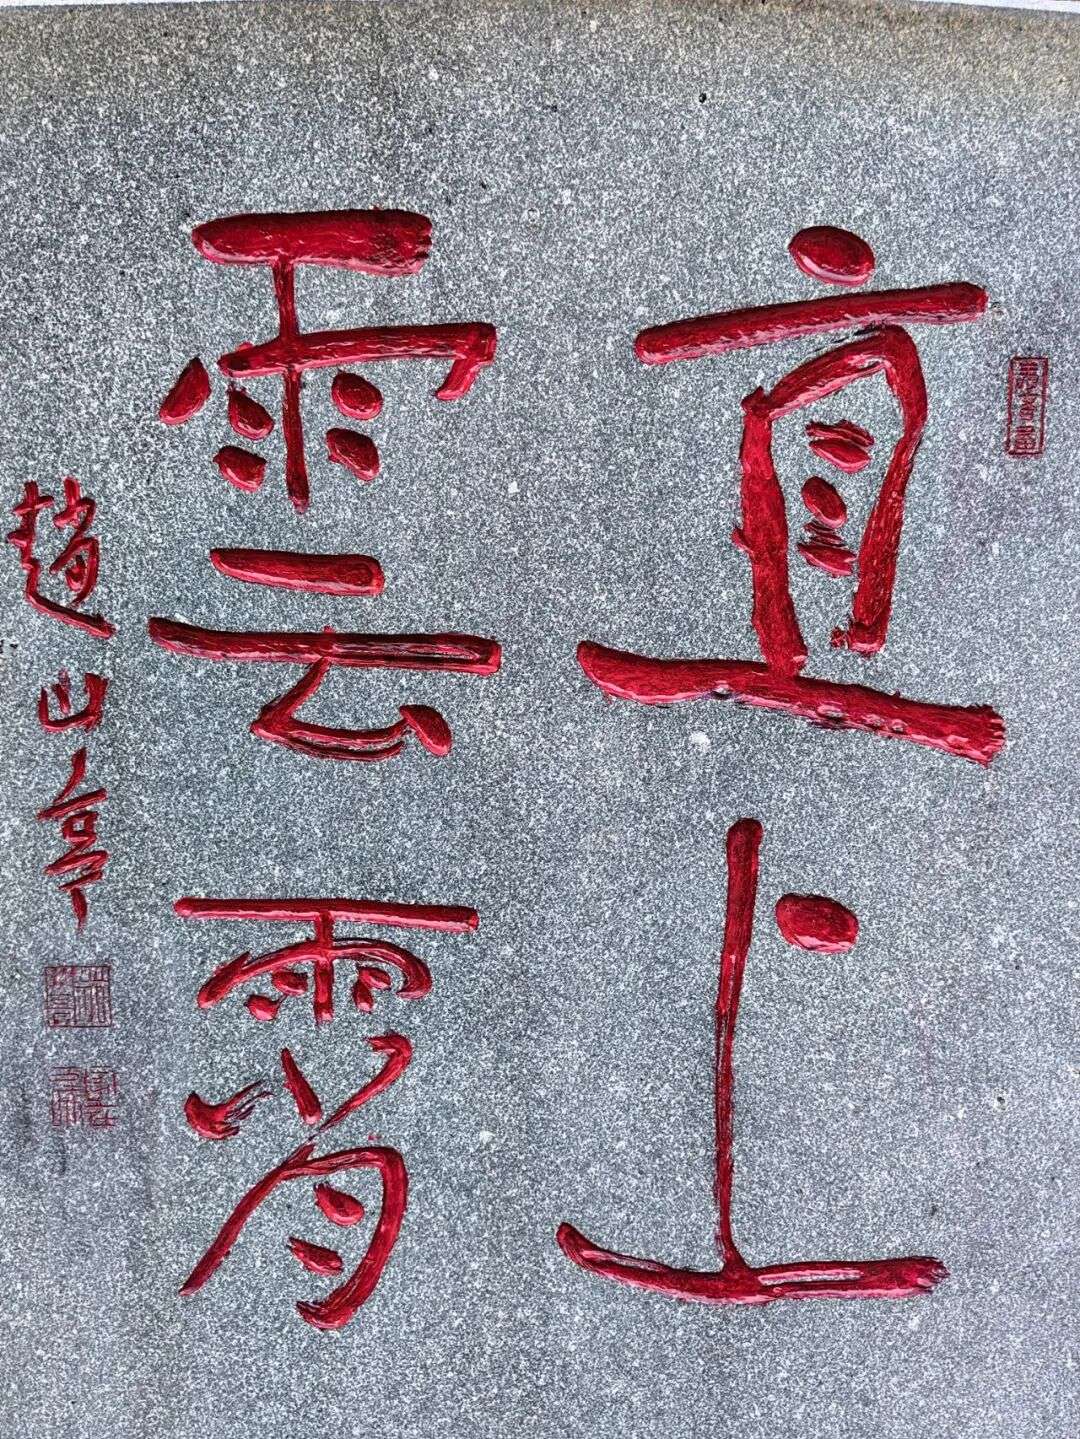 直上
雲霄
趙山亭